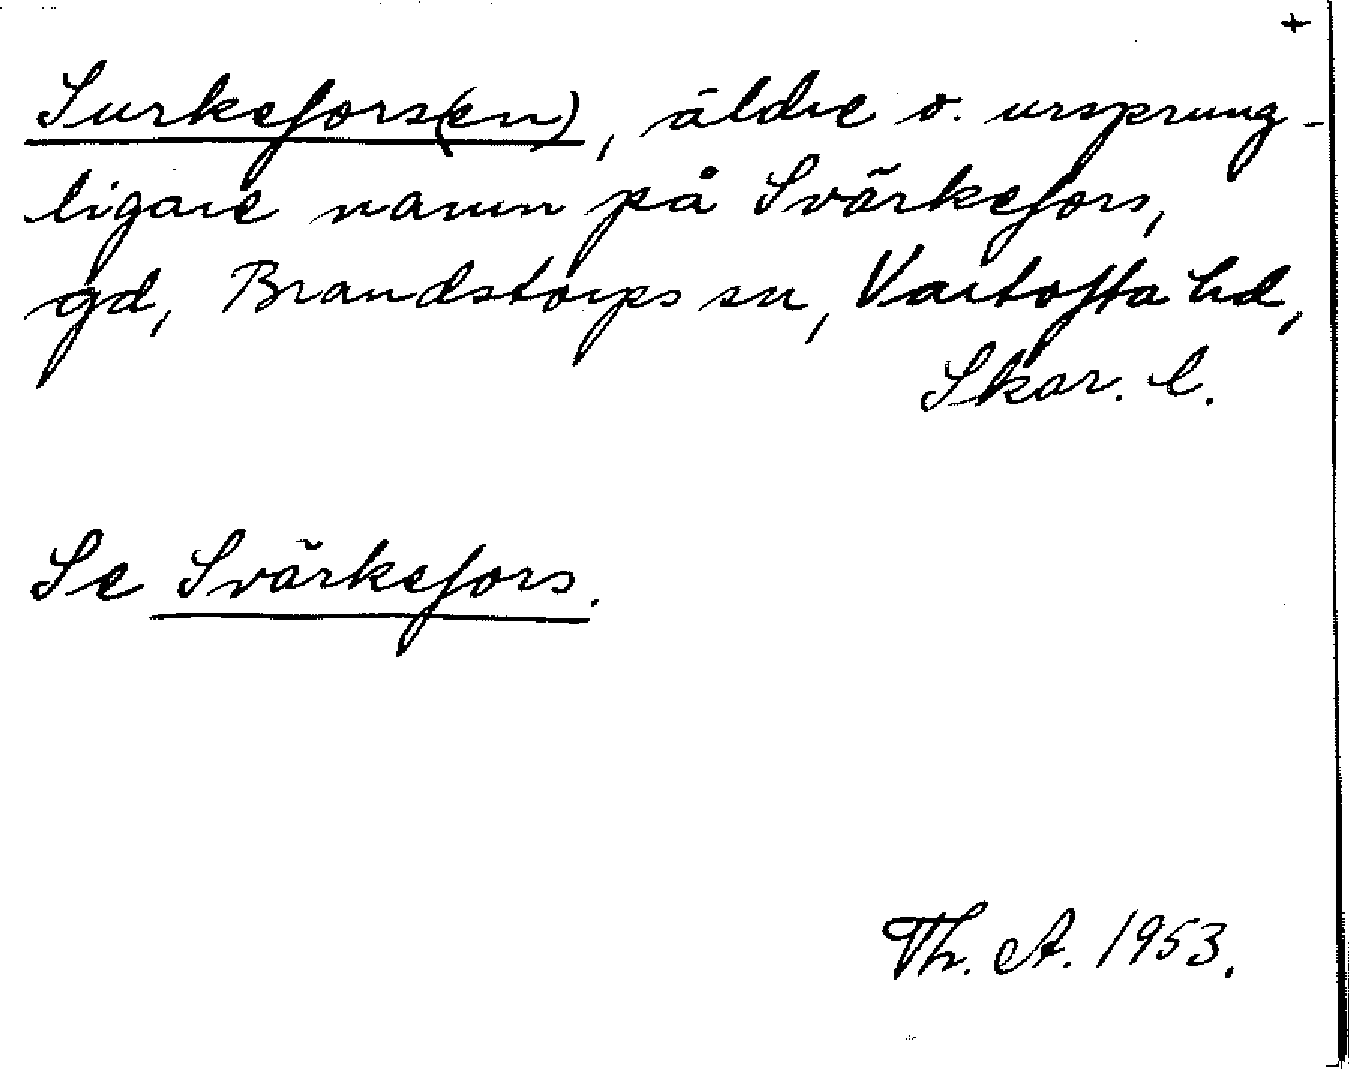 +
Surkefors(en), äldre o. ursprung-
ligare namn på Svärkefors,
gd, Brandstorps sn, Vartofta hd,
Skar. l.
Se Svärkefors.
Th. A. 1953.